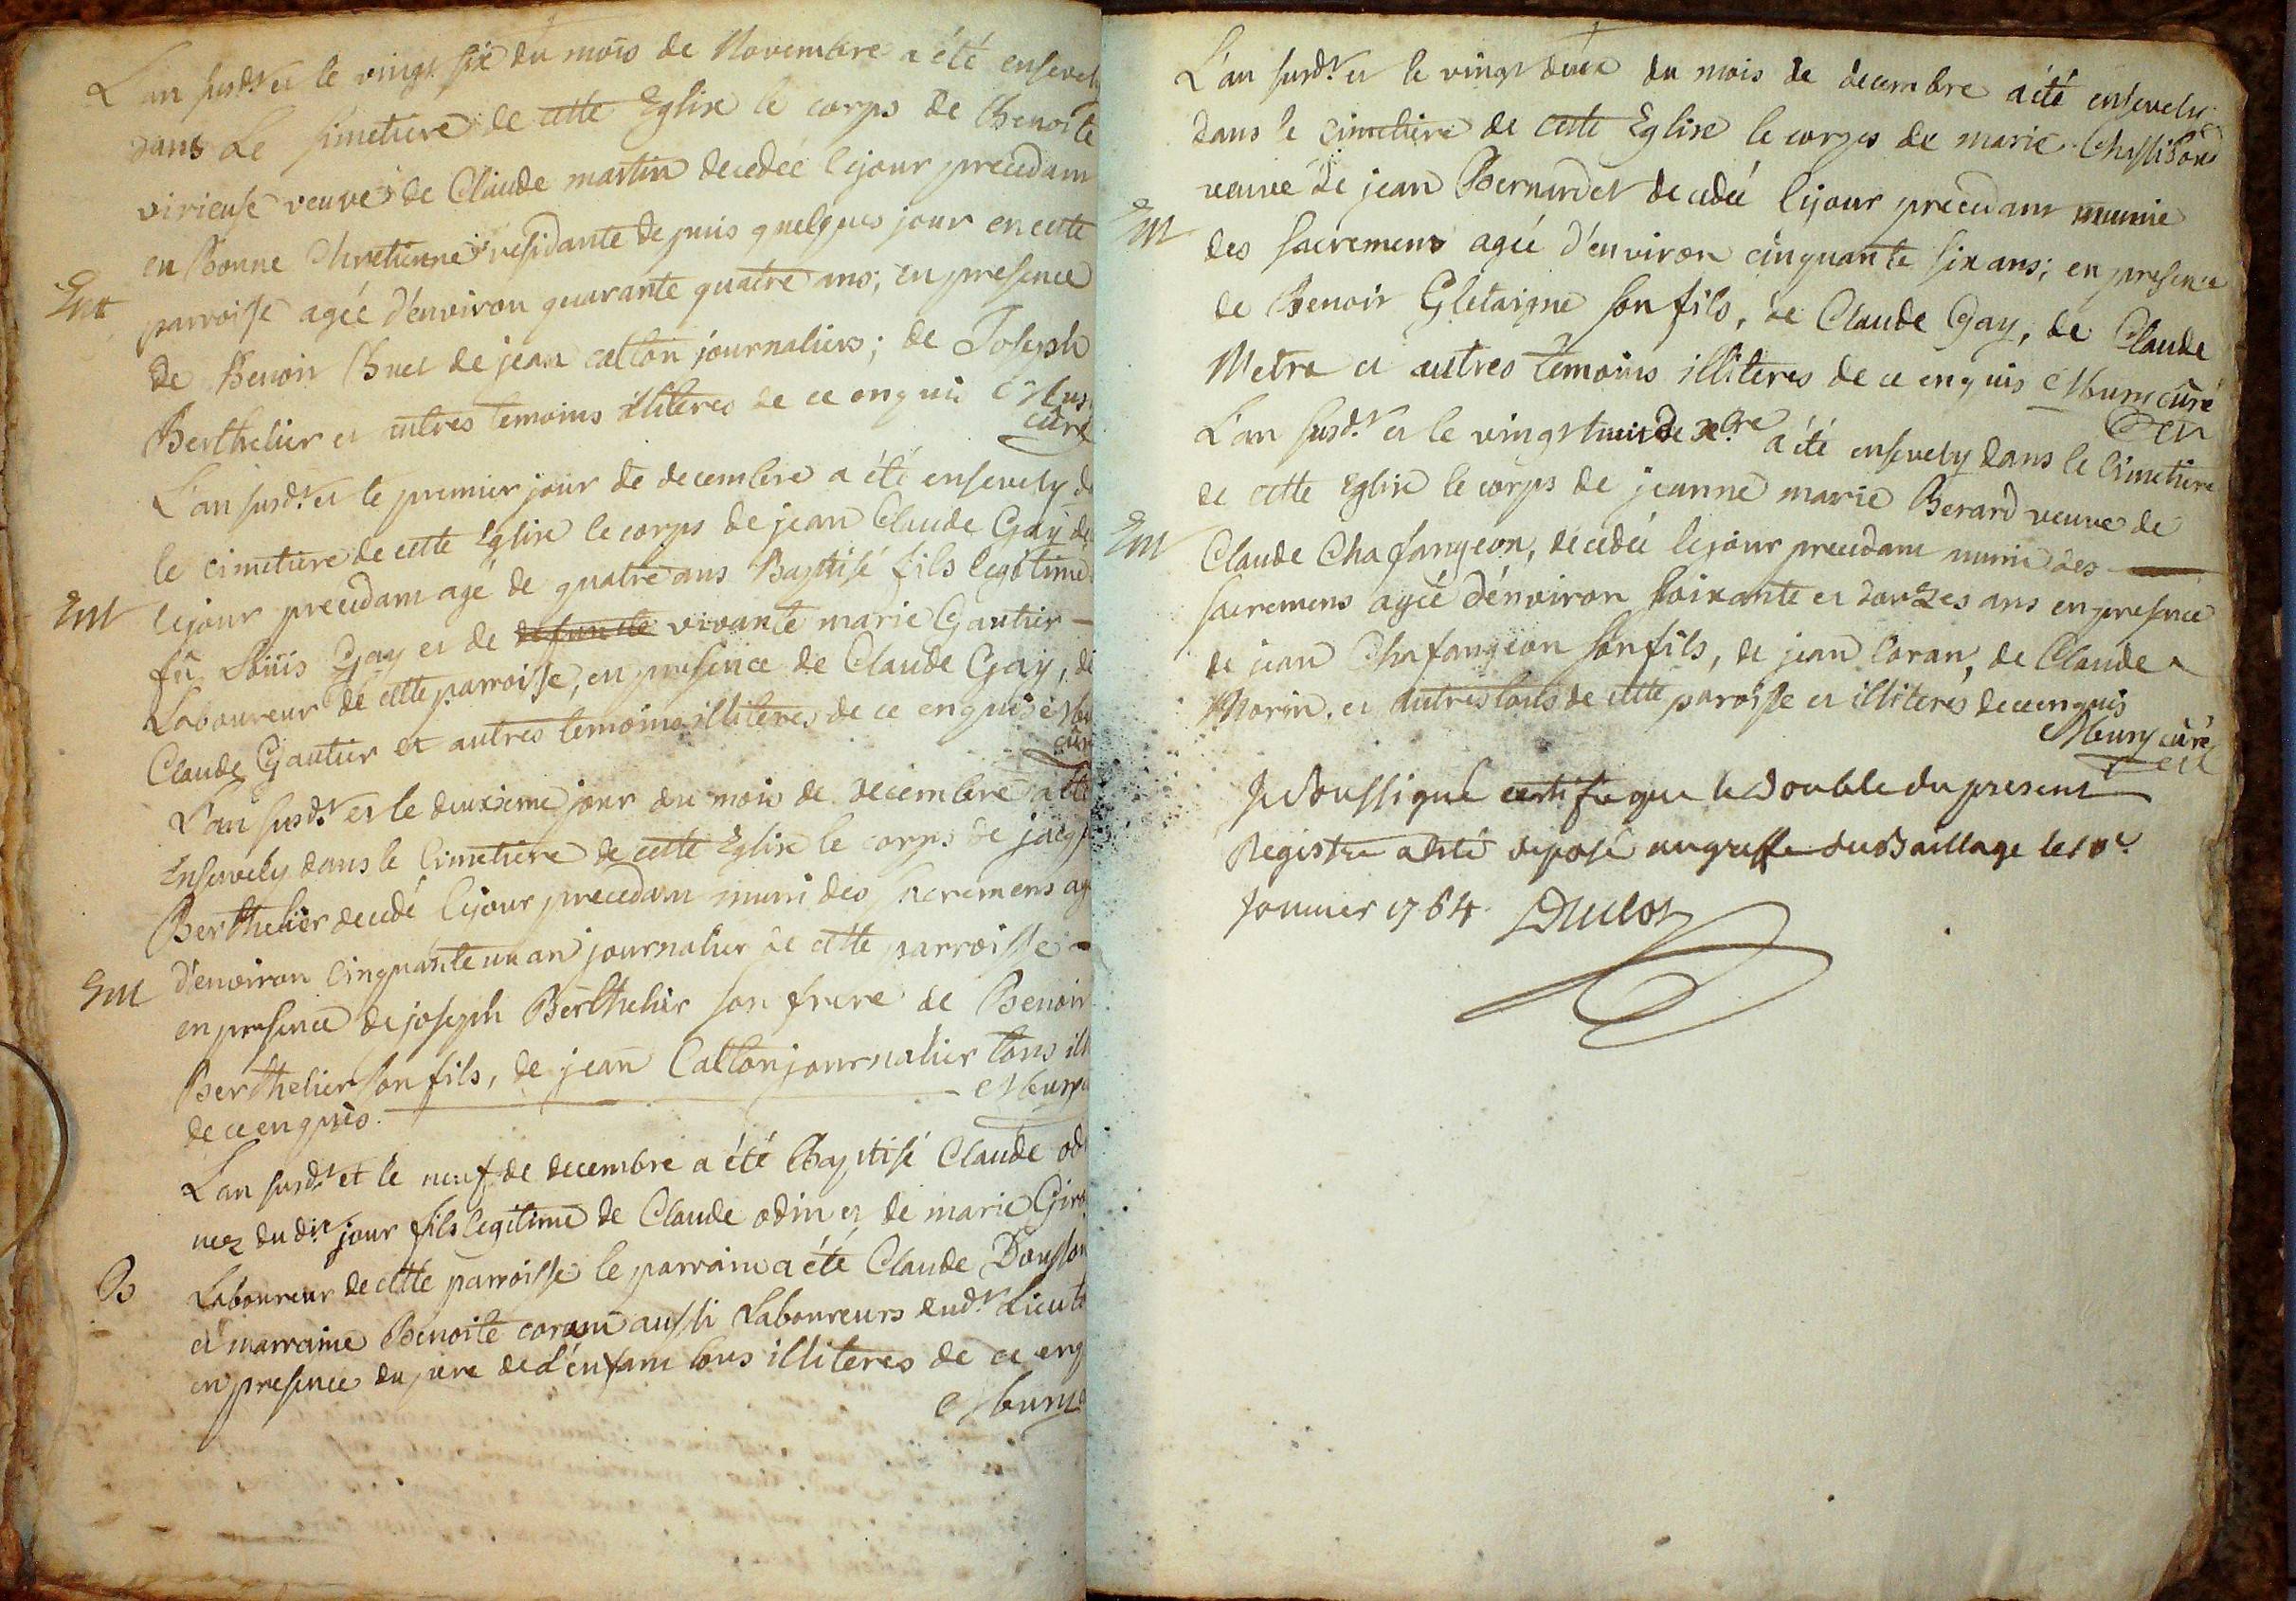 L'an susd.t et le vingt six du mois de Novembre a été ensevely
dans Le simetiere de cette Eglise le corps de Benoite
virieuse veuve de Claude martin decedée le jour precedam
Ent
en Bonne Chretienne residante depuis quelques jour en cette
parroisse agée d'environ quarante quatre ans; en presence
de Benoit de jean catton journaliers; de Joseph
Berthelier et autres temoins illiteres de ce enquis
curé
L'an susd.t et le premier jour de decembre a été ensevely d
le cimetiere de cette Eglise le corps de jean Claude Gay de
Ent
le jour precedam agé de quatre ans Baptisé fils legitime
fû Loüis Gay et de defuncte vivante marie Gautier
Laboureur de cette parroisse, en presence de Claude Gay, de
Claude Gautier et autres temoins illiteres de ce enquis
cur
L'an susd.t et le deuxieme jour du mois de decembre a été
Ensevely dans le cimetiere de cette Eglise le corps de jacq
Berthelier decedé le jour precedam muni des sacremens ag
Ent
d'environ cinquante un an journalier de cette parroisse
en presence de joseph Berthelier son frere de Benoit
Berthelier son fils, de jean Catton journalier tous ill
de ce enquis.
L'an susd.t et le neuf de decembre a été Baptisé Claude od
nez dudit jour fils legitime de Claude odin et de marie Gir
B
Laboureur de cette parroisse le parrain a été Claude Dousson
et marraine Benoite coram aussi Laboureurs dud.t Lieu to
en presence du pere de l'enfam tous illiteres de ce enq
L'an susd.t et le vingt deux du mois de decembre a été ensevely
dans le cimetiere de cette Eglise le corps de marie
Ent
veuve de jean Bernardet decedée le jour precedam munie
des sacremens agée d'environ cinquante six ans; en presence
de Benoit Gletaigne son fils, de Claude Gay, de Claude
Metra et autres temoins illiteres de ce enquis curé
L'an susd.t et le vingt trois de xbre a été ensevely dans le cimetiere
de cette Eglise le corps de jeanne marie Berard veuve de
Ent
Claude Chafangeon, decedée le jour precedam muni des
sacremens agée d'environ soixante et douzes ans en presence
de jean Chafangeon son fils, de jean Coran, de Claude
Morin. et autres tous de cette paroisse et illiteres de ce enquis
curé
Je soussigné certifie que le double du present
Registre a été deposé au greffe du Baillage le 10e
janvier 1764. Duclos